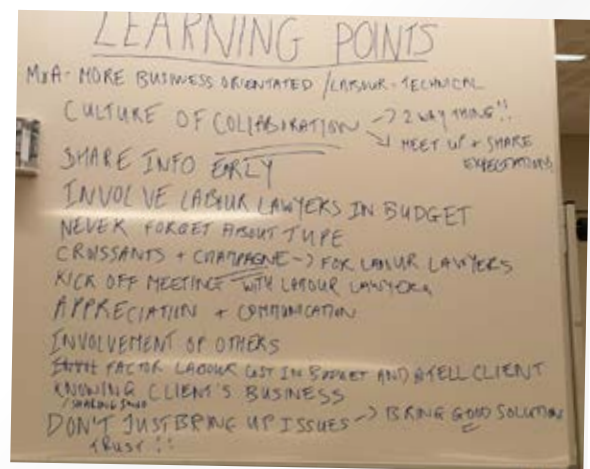 LEARNING POINTS
M&A - MORE BUSINESS ORIENTATED / LABOUR - TECHNICAL
CULTURE OF COLLABORATION → 2 WAY THING!!
↘ MEET UP + SHARE
EXPECTATIONS
SHARE INFO EARLY
INVOLVE LABOUR LAWYERS IN BUDGET
NEVER FORGET ABOUT TUPE
CROISSANTS + CHAMPAGNE → FOR LABOUR LAWYERS
KICK OFF MEETING WITH LABOUR LAWYERS
APPRECIATION + COMMUNICATION
INVOLVEMENT OF OTHERS
FACTOR LABOUR COST IN BUDGET AND TELL CLIENT
KNOWING CLIENT'S BUSINESS
/ SHARING
DON'T JUST BRING UP ISSUES → BRING GOOD SOLUTION
TRUST !!